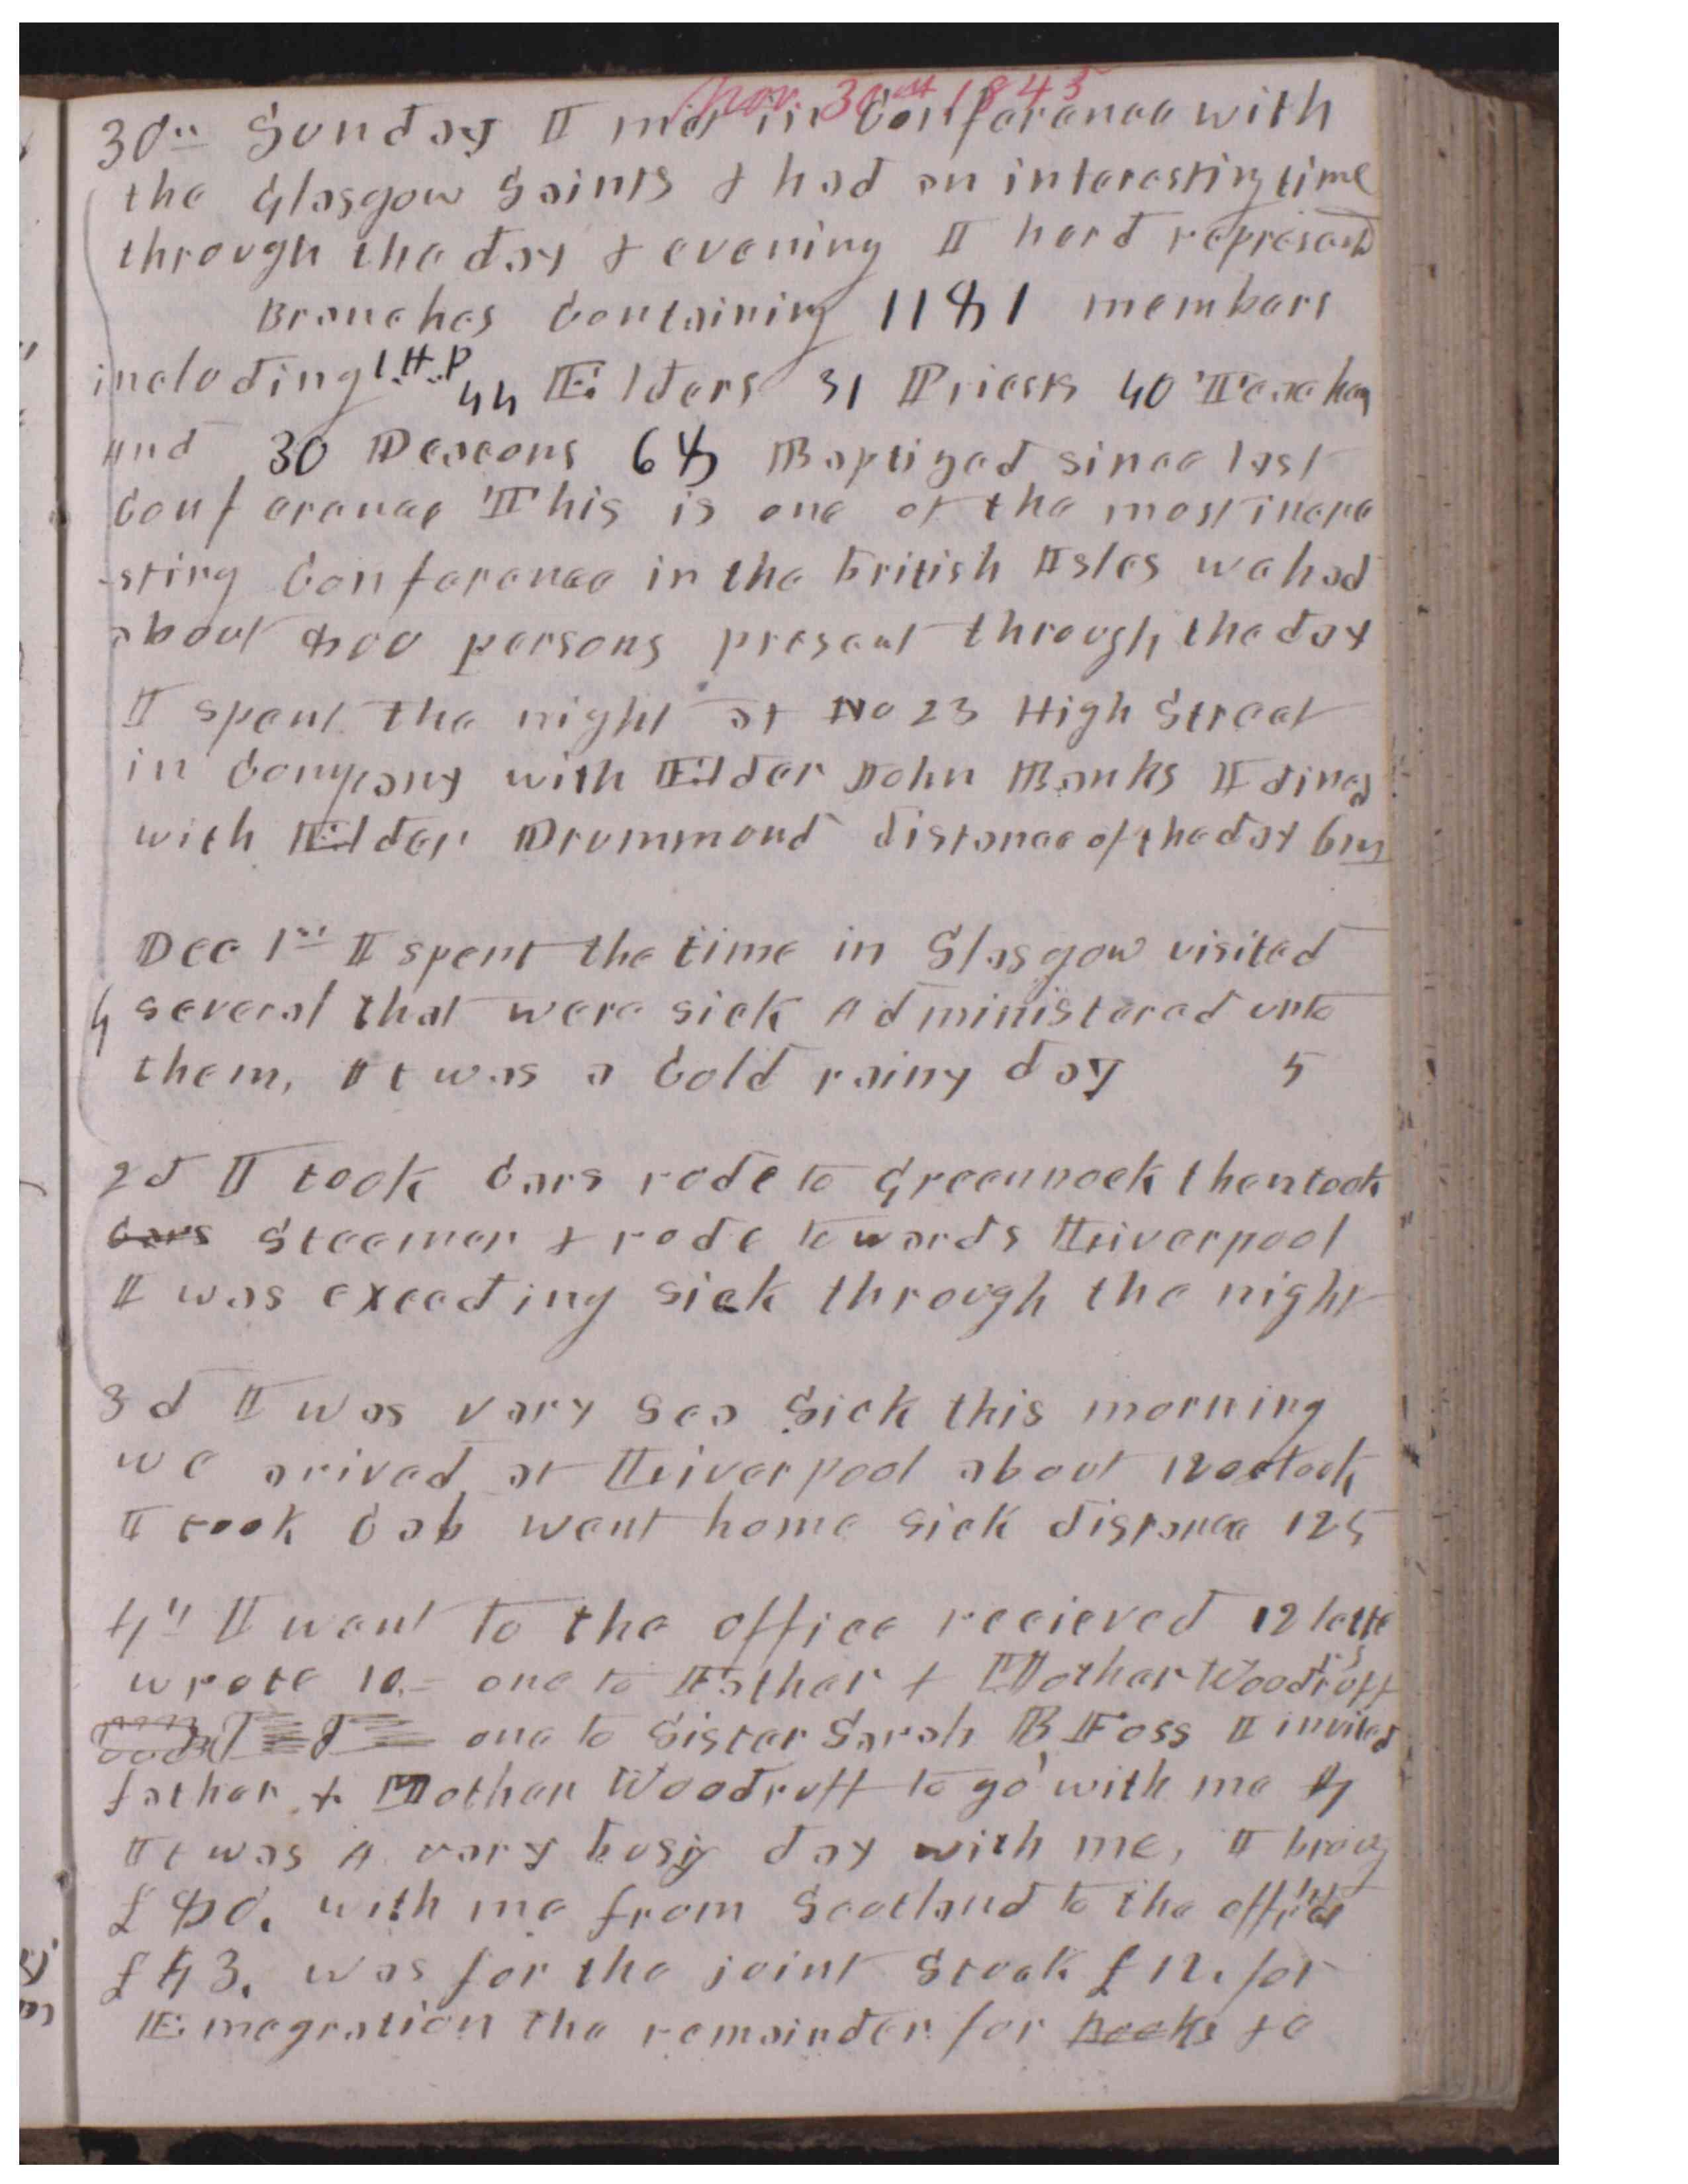 Nov. 30th 1845
30th Sunday I met in Conference with
the Glasgow Saints & had an interesting time
through the day & evening I herd represented
Branches Containing 1181 members
including 1 H.P 44 Elders 31 Priests 40 Teachers
and 30 Deacons 64 Baptized since last
Conference This is one of the most intere
-sting Conference in the British Isles we had
about 800 persons present through the day
I spent the night at No 23 High Street
in Company with Elder John Banks I dined
with Elder Drummond distance of the day 6 m
Dec 1st I spent the time in Glasgow visited
several that were sick Administered unto
4
them, It was a Cold rainy day 5
2d I took Cars rode to Greennock then took
Cars Steemer & rode towards Liverpool
I was exceeding sick through the night
3d I was vary Sea Sick this morning
we arived at Liverpool about 12 oclock
I took Cab went home sick distance 125
4th I went to the office recieved 12 letters
wrote 10.= one to Father & Mother Woodruff
one to Sister Sarah B Foss I invited
father & Mother Woodruff to go with me
It was A vary busy day with me, I brought
£80. with me from Scotland to the office
£43. was for the joint Stock £12. for
Emegration the remainder for books &c